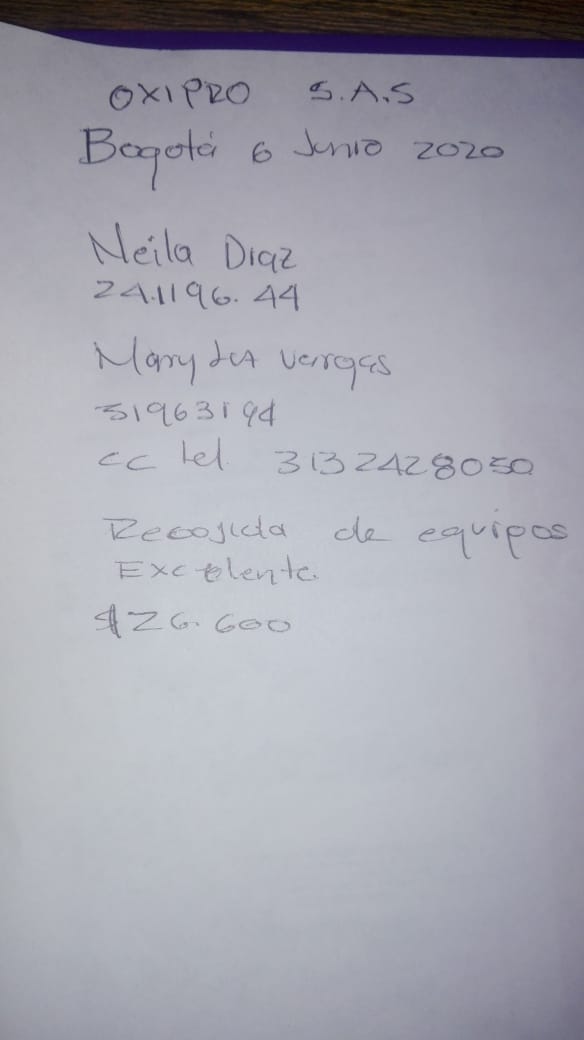 OXIPRO S.A.S
Bogotá 6 Junio 2020
Neila Diaz
24.1196.44
Mary vargas
51963194
cc tel. 3132428050
Recojida de equipos
Excelente.
$26.600